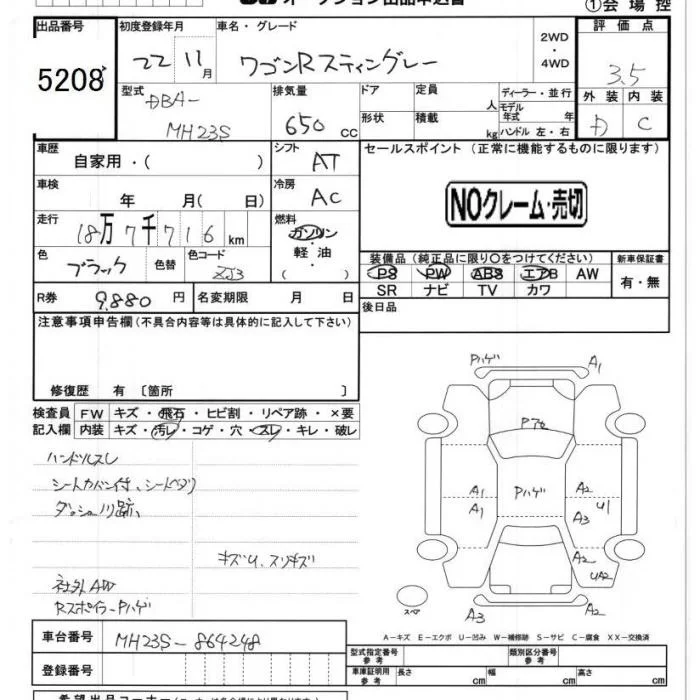 オークション出品申込書
①会場控
出品番号 初度登録年月 車名・グレード 評価点
5208 22 11月 ワゴンRスティングレー 2WD・4WD 3.5
型式 排気量 ドア 定員 ディーラー・並行 外装 内装
DBA- 人 モデル年式 年 D C
MH23S 650 cc 形状 積載 kg ハンドル 左・右
車歴 シフト セールスポイント (正常に機能するものに限ります)
自家用・( ) AT
車検 冷房 NOクレーム・売切
年 月( 日) AC
走行 燃料
18万7千716km ガソリン
軽油
色 色替 色コード ( )
ブラック ZJ3
装備品 (純正品に限り○をつけてください) 新車保証書
PS PW ABS エアB AW 有・無
SR ナビ TV カワ
R券 9,880円 名変期限 月 日 後日品
注意事項申告欄 (不具合内容等は具体的に記入して下さい)
修復歴 有 〔箇所 〕
検査員 FW キズ・飛石・ヒビ割・リペア跡・×要
記入欄 内装 キズ・汚レ・コゲ・穴・スレ・キレ・破レ
ハンドルスレ
シートカバー付、シートヘタリ
ダッシュ川跡、
キズU、スリキズ
社外AW
Rスポイラー Pハゲ
Pハゲ A1
P76
A1 Pハゲ A2
A1 A3 U1
A2
UA2
スペア A3 A2
A-キズ E-エクボ U-凹み W-補修跡 S-サビ C-腐食 XX-交換済
車台番号 MH23S-864248
型式指定番号 参考 類別区分番号 参考
登録番号 車庫証明用 参考 長さ cm 幅 cm 高さ cm
希望出品コーナー